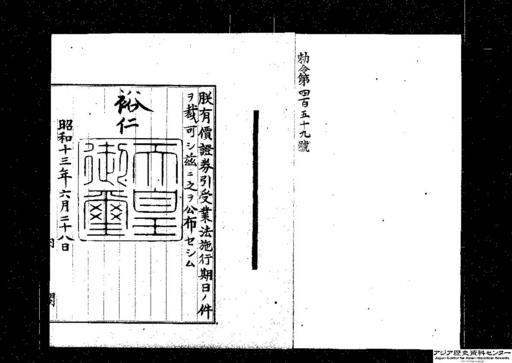 勅令第四百五十九號
朕有價證券引受業法施行期日ノ件
ヲ裁可シ茲ニ之ヲ公布セシム
裕仁
天皇
御璽
昭和十三年六月二十八日
内閣
アジア歴史資料センター
Japan Center for Asian Historical Records